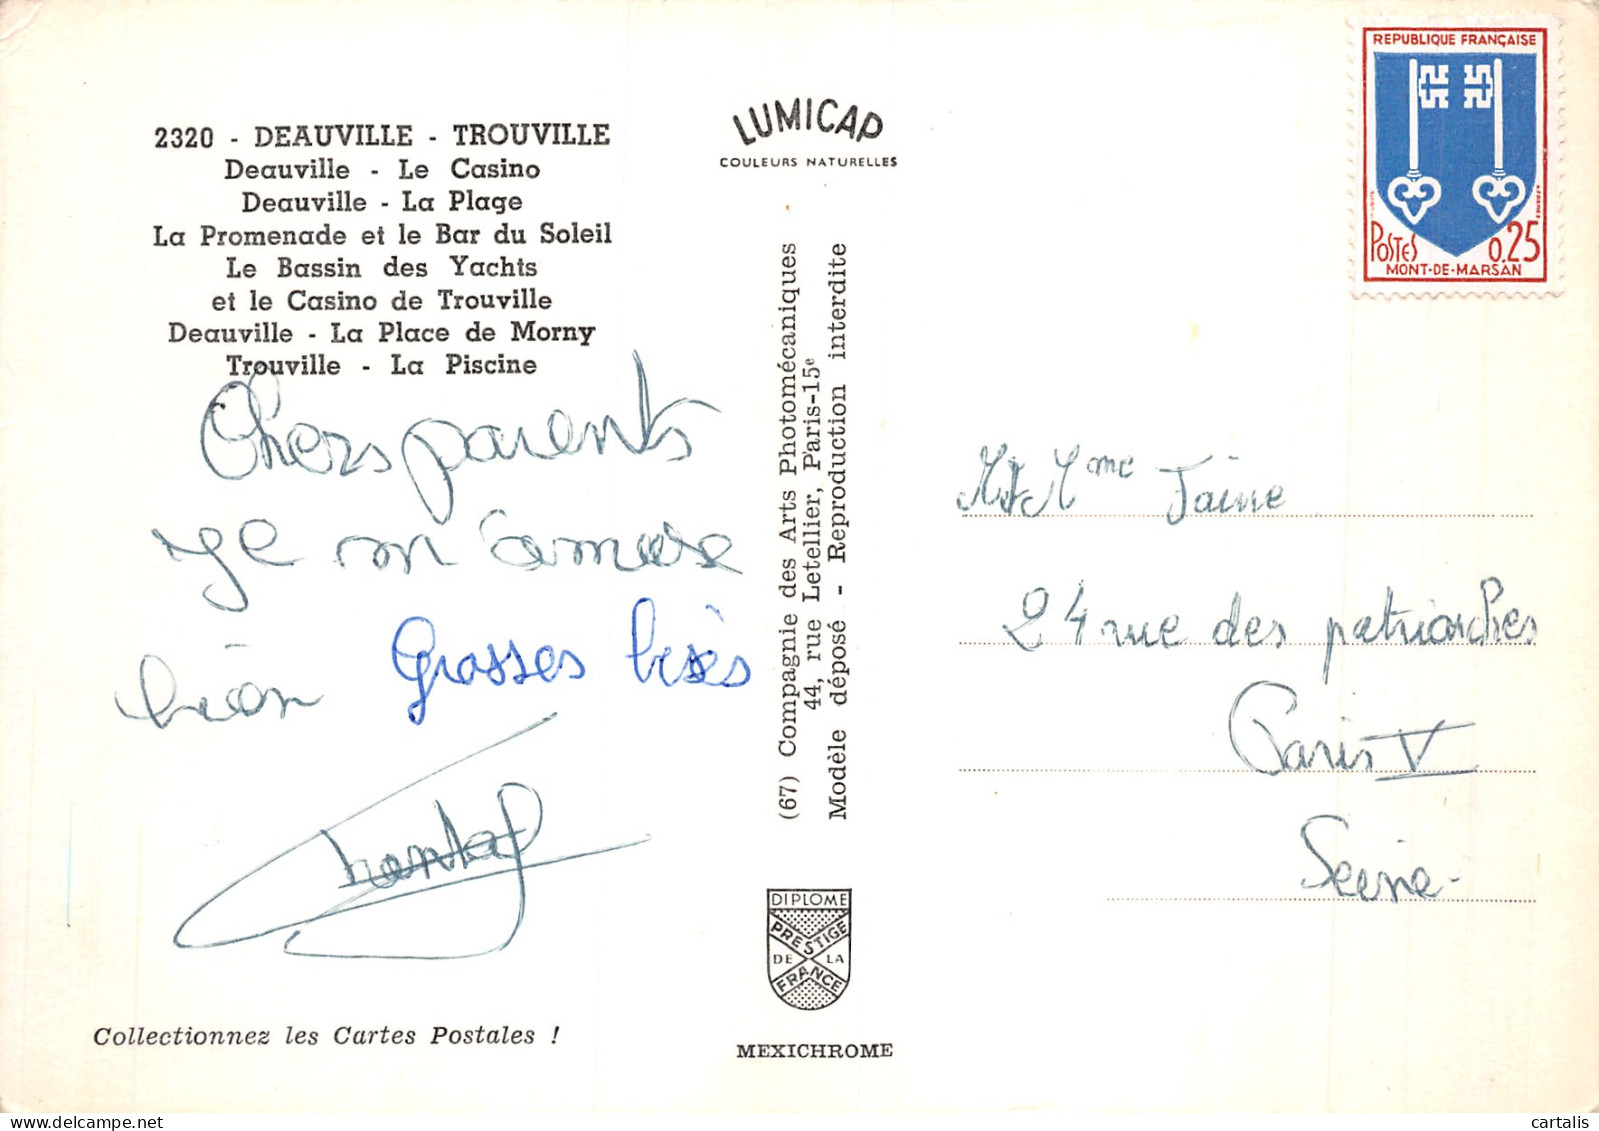 2320 - DEAUVILLE - TROUVILLE
Deauville - Le Casino
Deauville - La Plage
La Promenade et le Bar du Soleil
Le Bassin des Yachts
et le Casino de Trouville
Deauville - La Place de Morny
Trouville - La Piscine
Chers parents
Je m'amuse
bien Grosses bises
Chantal
Collectionnez les Cartes Postales !
LUMICAP
COULEURS NATURELLES
(67) Compagnie des Arts Photomécaniques
44, rue Letellier, Paris-15e
Modèle déposé - Reproduction interdite
DIPLOME
PRESTIGE
DE LA
FRANCE
MEXICHROME
REPUBLIQUE FRANÇAISE
POSTES 0,25
MONT-DE-MARSAN
Mme
24 rue des patriarches
Paris V
Seine-
cartalis